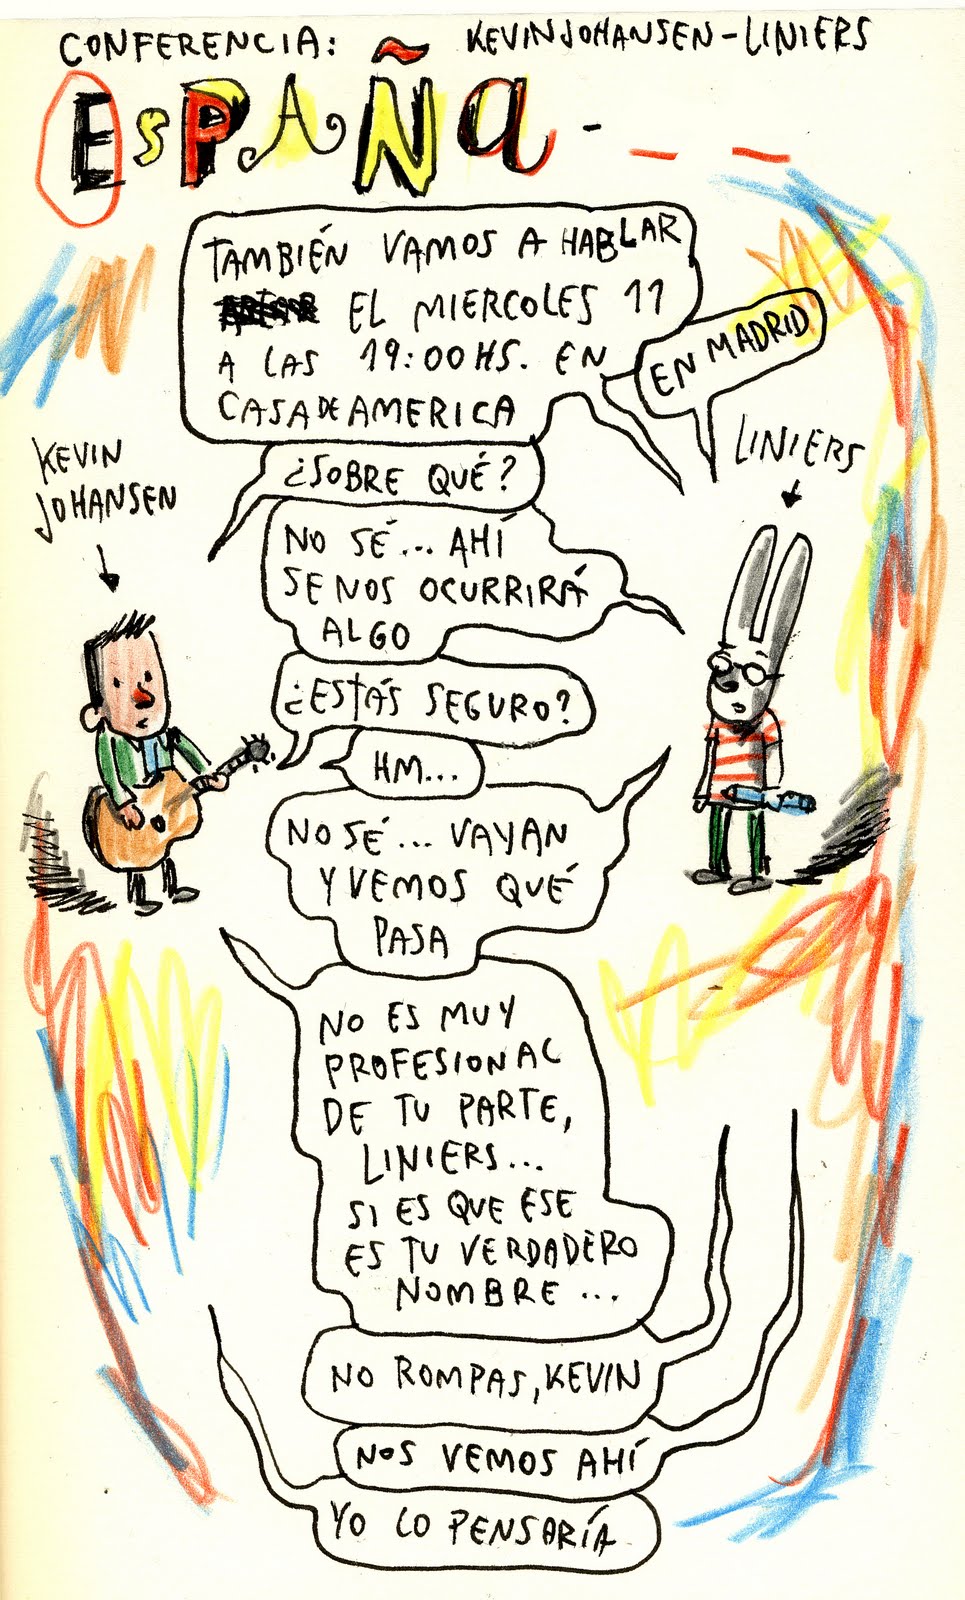 CONFERENCIA: KEVIN JOHANSEN-LINIERS
ESPAÑA-
TAMBIÉN VAMOS A HABLAR
EL MIERCOLES 11
A LAS 19:00 HS. EN
CASA DE AMERICA
EN MADRID
KEVIN
JOHANSEN
LINIERS
¿SOBRE QUÉ?
NO SÉ... AHÍ
SE NOS OCURRIRÁ
ALGO
¿ESTÁS SEGURO?
HM...
NO SÉ... VAYAN
Y VEMOS QUÉ
PASA
NO ES MUY
PROFESIONAL
DE TU PARTE,
LINIERS...
SI ES QUE ESE
ES TU VERDADERO
NOMBRE...
NO ROMPAS, KEVIN
NOS VEMOS AHÍ
YO LO PENSARÍA